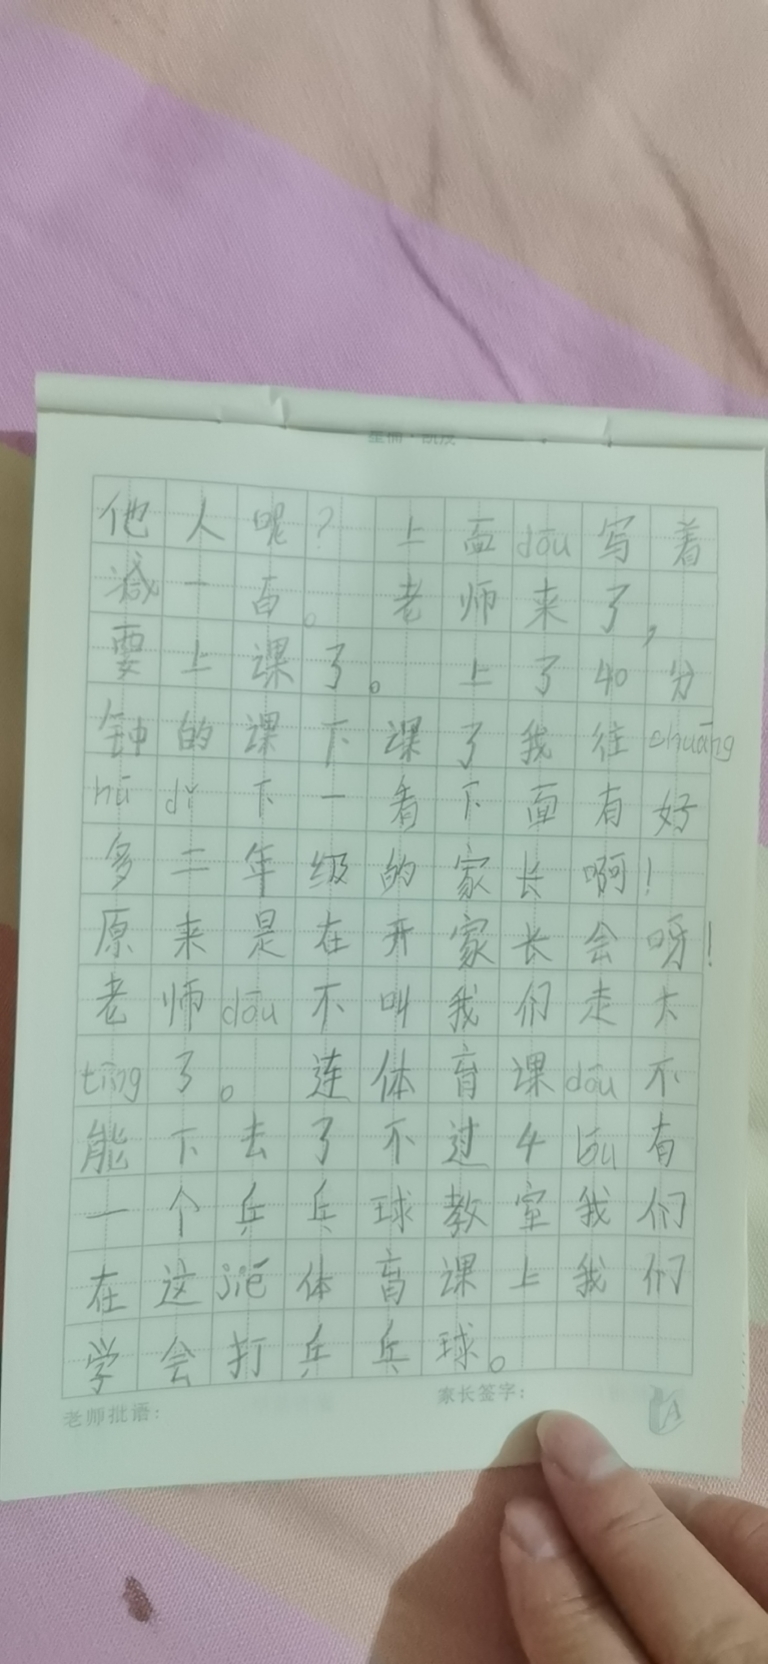 他人呢？上面dōu写着
减一百。老师来了，
要上课了。上了40分
钟的课下课了我往chuāng
hū dǐ下一看下面有好
多二年级的家长啊！
原来是在开家长会呀！
老师dōu不叫我们走大
tīng了。连体育课dōu不
能下去了不过4lóu有
一个乒乓球教室我们
在这jiē体育课上我们
学会打乒乓球。
老师批语：
家长签字：